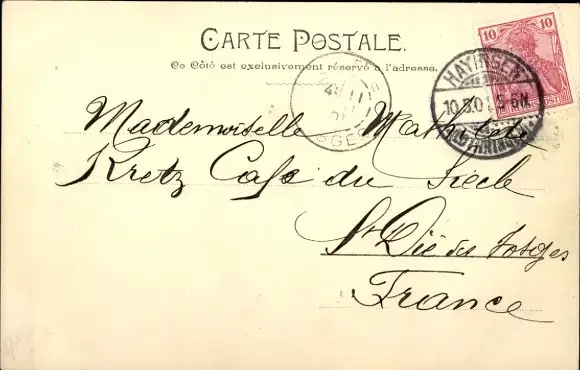 CARTE POSTALE.
Ce Côté est exclusivement réservé à l'adresse.
10 10
HAYINGEN
10.5.01 5-6N.
Mademoiselle Mathilde
Kretz Café du Siècle
St Dié des Vosges
France